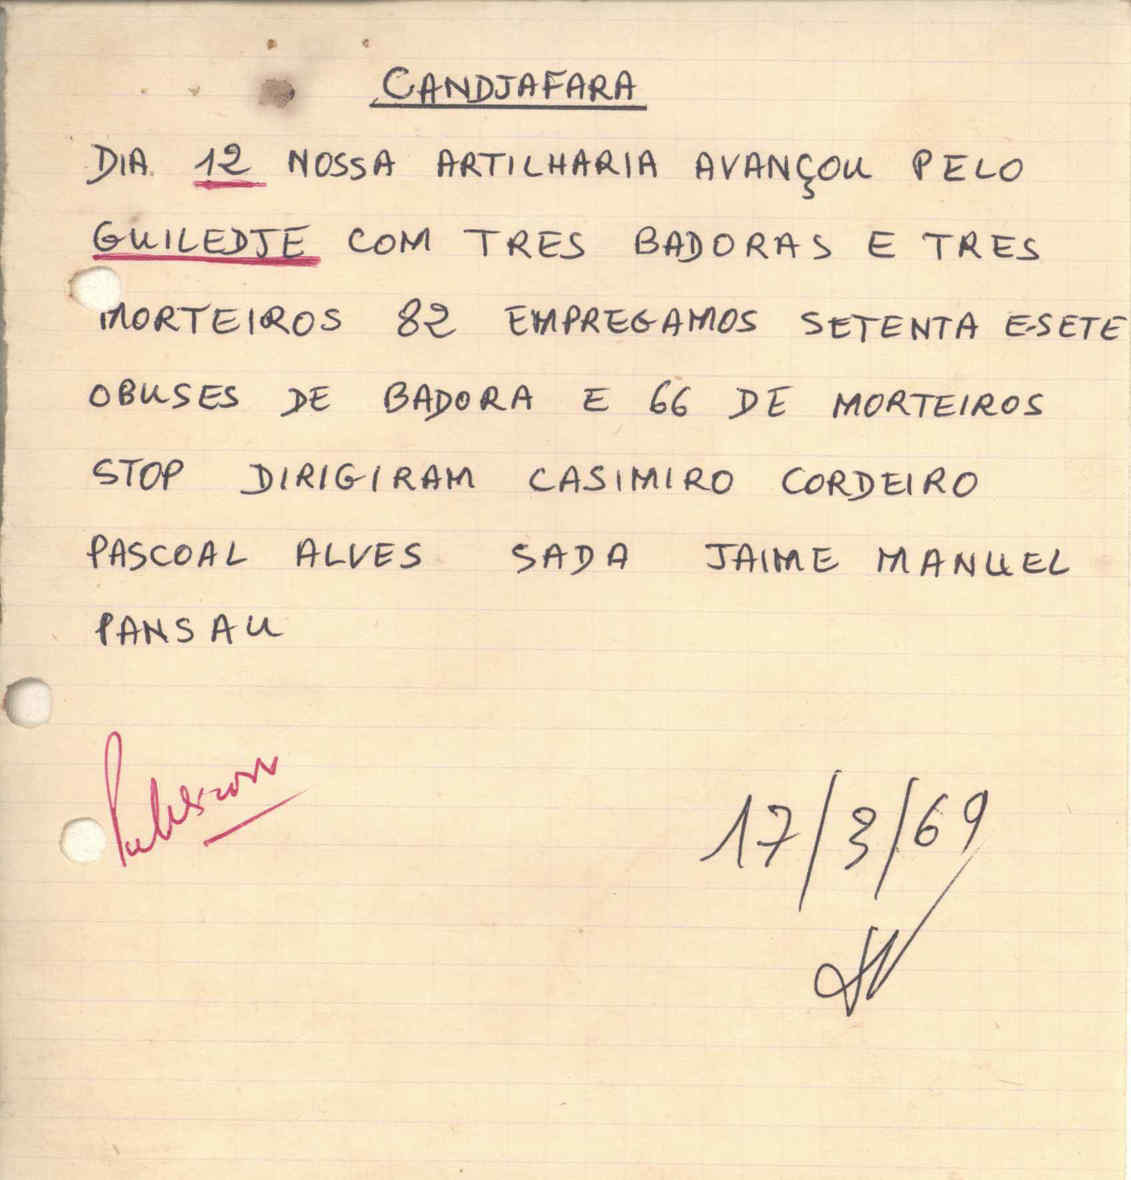 CANDJAFARA
DIA. 12 NOSSA ARTILHARIA AVANÇOU PELO
GUILEDJE COM TRES BADORAS E TRES
MORTEIROS 82 EMPREGAMOS SETENTA E-SETE
OBUSES DE BADORA E 66 DE MORTEIROS
STOP DIRIGIRAM CASIMIRO CORDEIRO
PASCOAL ALVES SADA JAIME MANUEL
PANSAU
17/3/69